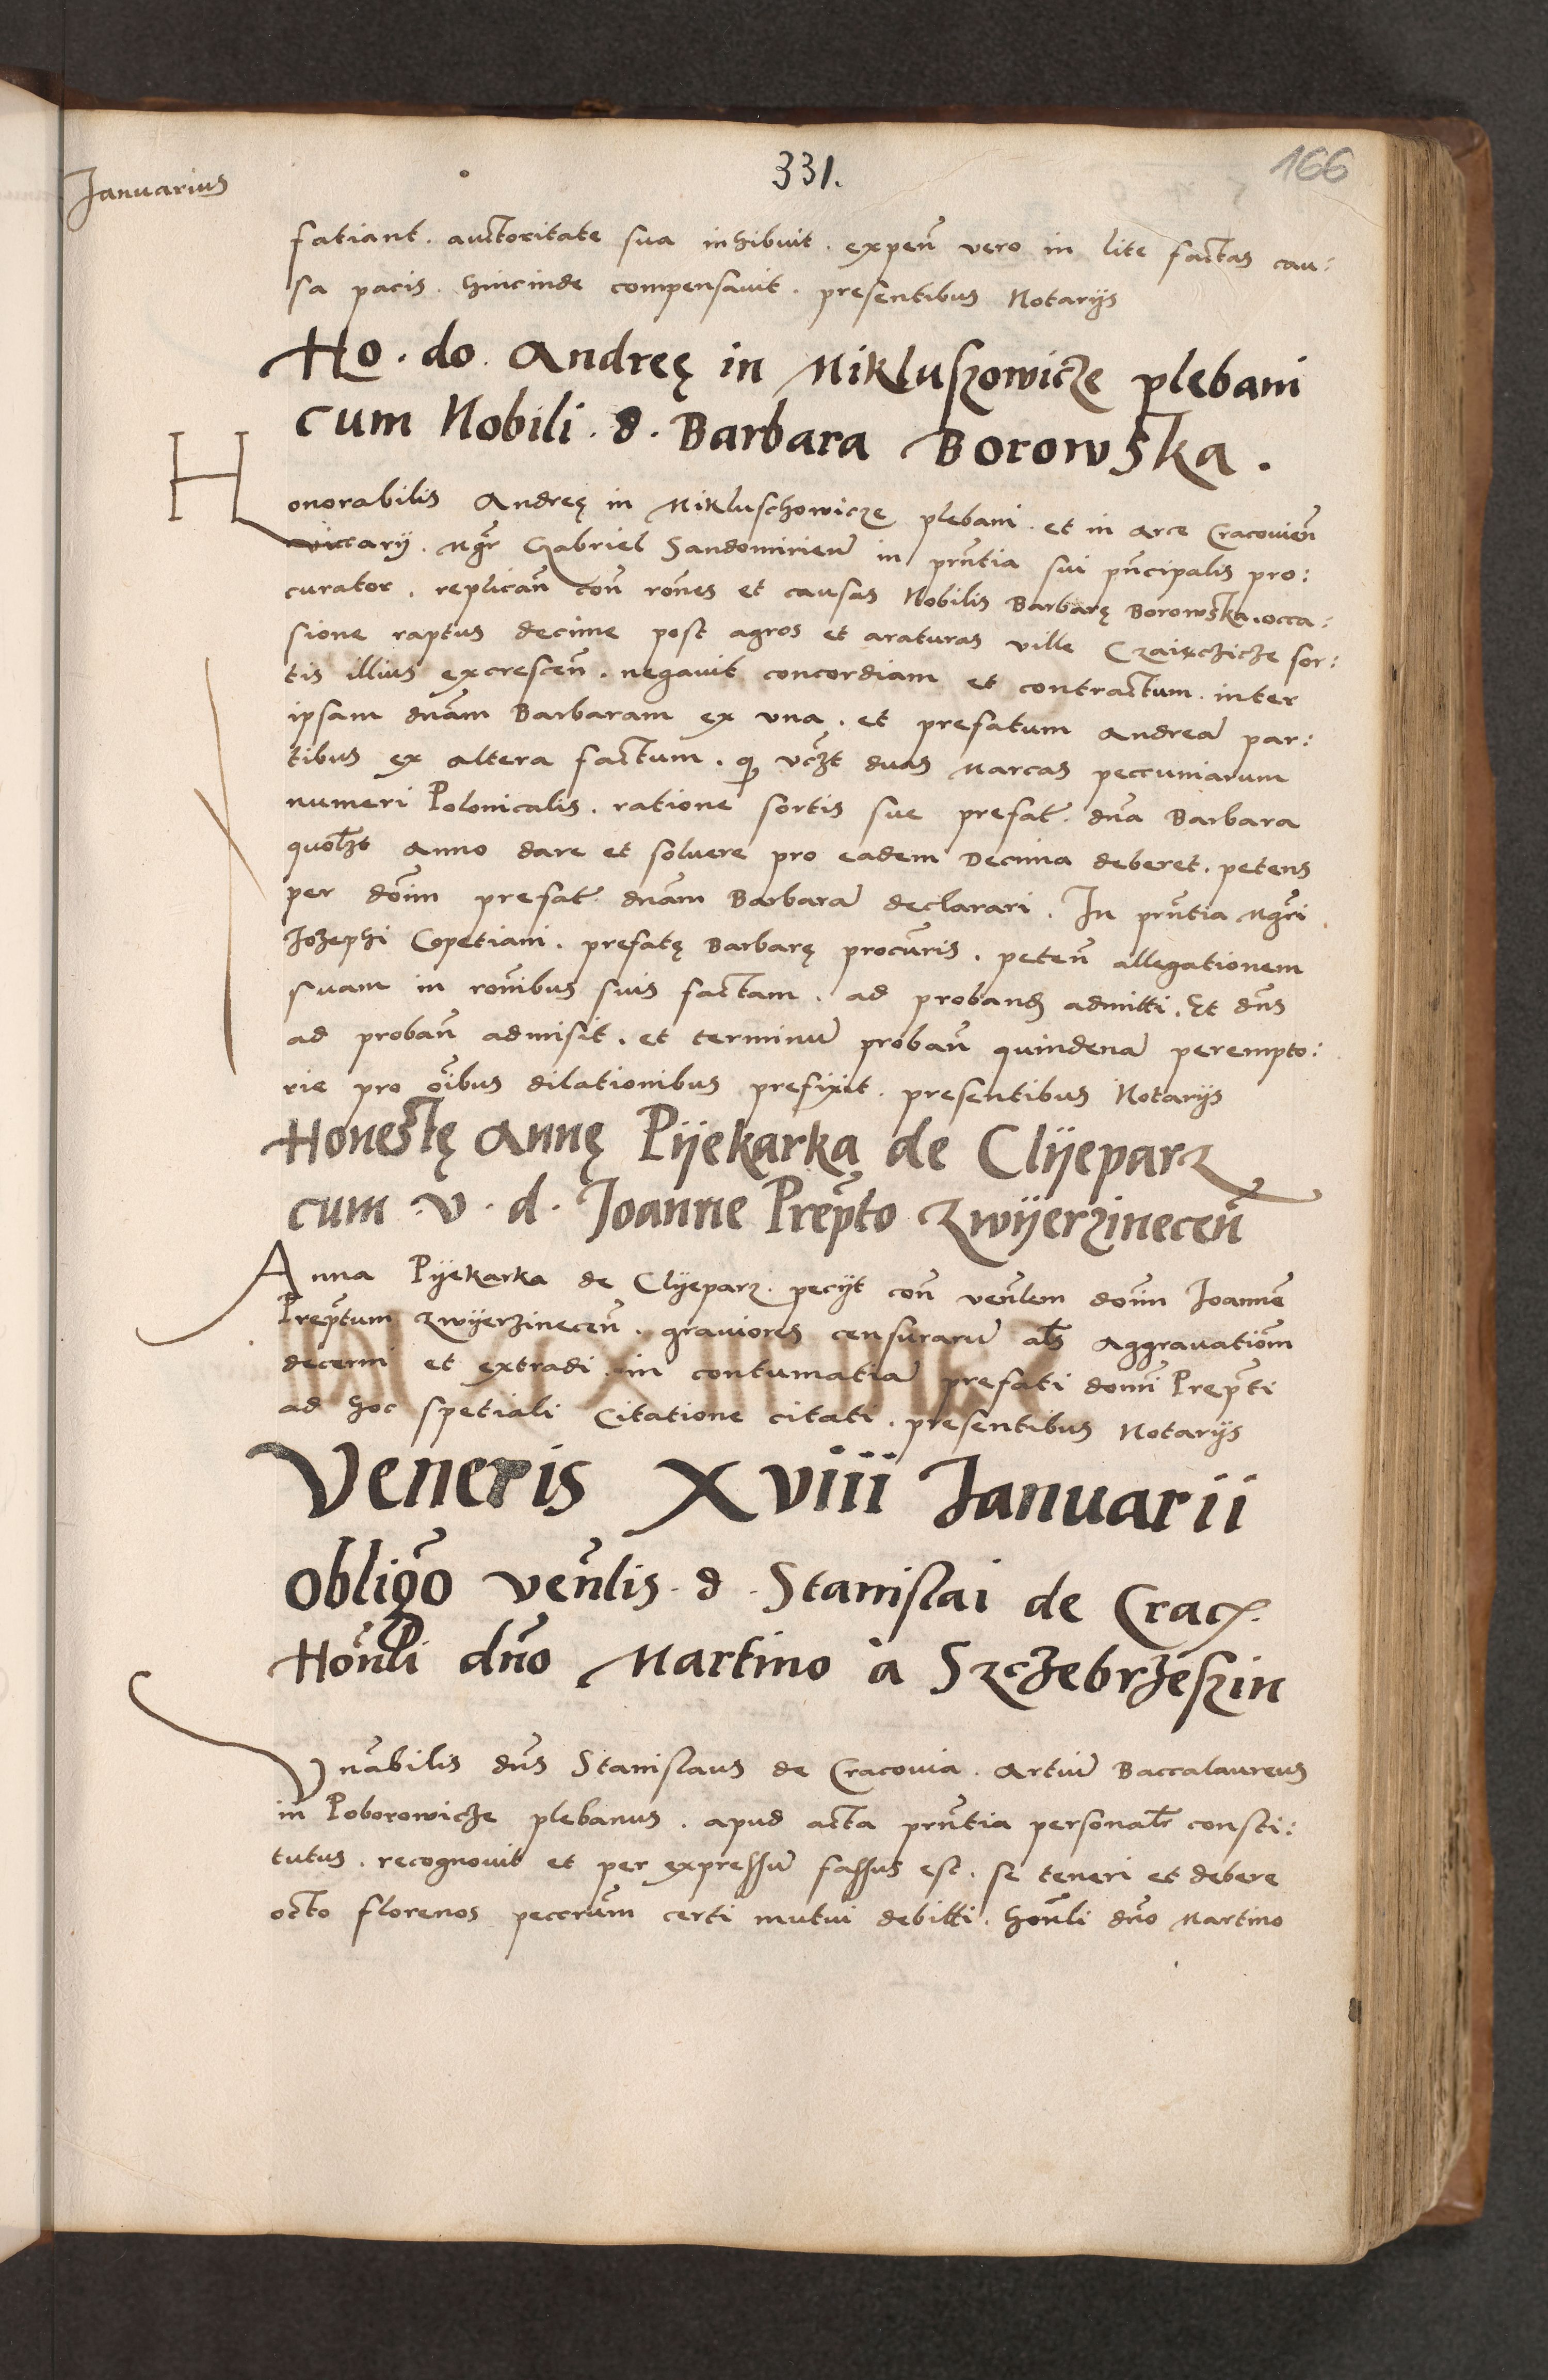 Januarius
331.
166
fatiant . auctoritate sua inhibuit . expeñ vero in lite factas cau:
sa pacis . hincinde compensauit . presentibus Notarijs
Ho . do . Andreę in Mikluszowicze plebani
cum Nobili . d . Barbara Borowska .
Honorabilis Andreę in Mikluschowicze plebani . et in Arce Cracouień
viccarij . Mgr̃ Gabriel Sandomirień in prñtia sui pñcipalis pro:
curator . replicañ coñ rones et causas Nobilis Barbarę Borowska . occa:
sione raptus decime post agros et araturas ville sor:
tis illius excresceñ . negauit concordiam et contractum . inter
ipsam dnam Barbaram ex vna . et prefatum Andreã par:
tibus ex altera factum . vcƷt duas Marcas peccuniarum
numeri Polonicalis . ratione sortis sue prefat̃ . dna Barbara
quolƷt Anno dare et soluere pro eadem Decima deberet . petens
per doim prefat̃ dnam Barbarã declarari . In prñtia Mgr̃i
Jozephi Copetiani . prefatę Barbarę procuris . peteñ allegationem
suam in ronibus suis factam . ad proband admitti . Et dns
ad probañ admisit . et terminũ probañ quindenã perempto:
rie pro oibus dilationibus prefixit . presentibus Notarijs
Honestę Annę Pijekarka de Clijeparz
cum . v . d . Joanne Prepto Zwijerzineceñ
Anna Pijekarka de Clijeparz . pecijt coñ venlem doim Joannẽ
Preptum Zwijerzineceñ . grauiores censurarũ als Aggrauatiom
decerni et extradi . in contumatiã prefati domi Prepti
ad hoc spetiali Citatione citati . presentibus Notarijs
Veneris Xviii Januarii
obligo venlis . d . Stanislai de Crac.
Honli dno Martino à Szczebrzeszin
Vnabilis dns Stanislaus de Cracouia . Artiũ Baccalaureus
in Poborowicze plebanus . apud acta prñtia personalr consti:
tutus . recognouit et per expressũ fassus est . se teneri et debere
octo florenos peccrum certi mutui debitti . honli dno Martino